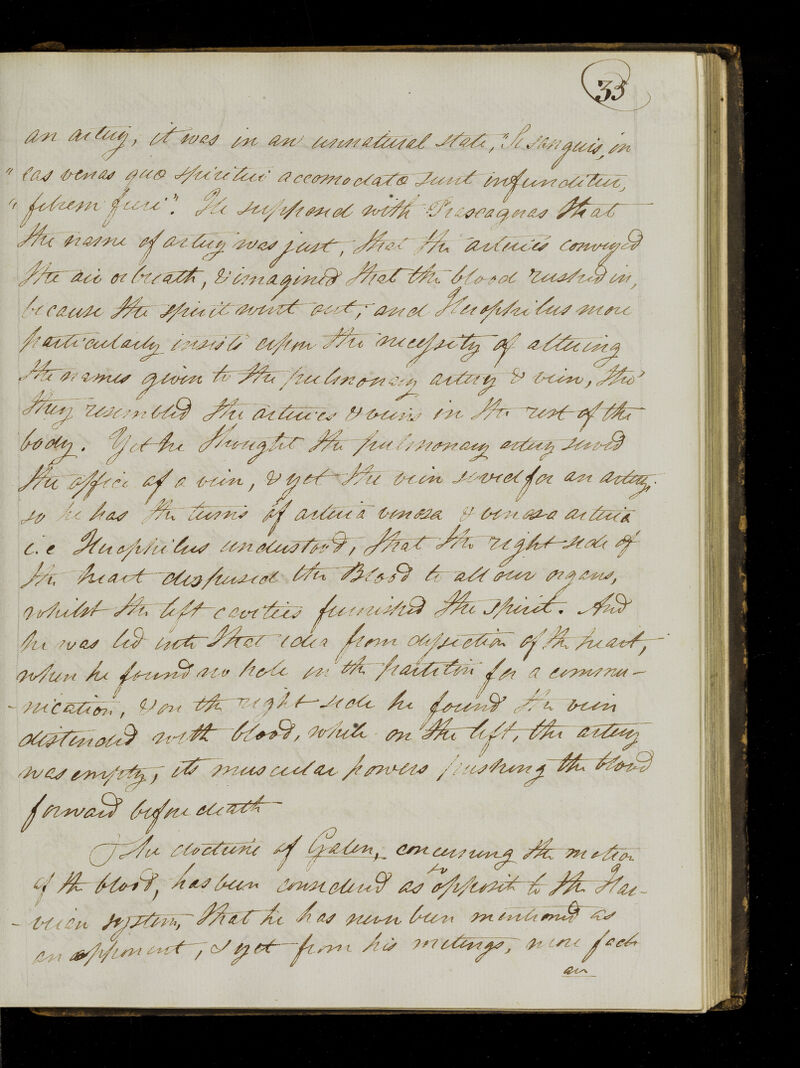 35
an artery, it was in an unnatural state, "Si sanguis, in
" eas venas quæ spiritui accomodatæ sunt infunditur,
" febrem fieri". He supposed with Praxagoras that
the name of artery was just, that the arteries conveyed
the air or breath, & imagined that the blood rushed in,
because the spirit went out; and Herophilus more
particularly insists upon the necessity of altering
the names given to the pulmonary artery & vein, tho'
they resembled the arteries & veins in the rest of the
body. Yet he thought the pulmonary artery served
the office of a vein, & yet the vein served for an artery,
so he has the terms of arteria venosa & venosa arteria
i.e Herophilus understood, that the right side of
the heart dispersed the Blood to all our organs,
whilst the left cavities furnished the spirit. And
he was led into that idea from dissection of the heart,
when he found no hole in the partition for a commu-
-nication, & on the right side he found the vein
distended with blood, while on the left, the artery
was empty, its muscular powers pushing the blood
forward before death
The doctrine of Galen, concerning the motion
of the blood, has been considered as so opposite to the Har-
-veian system, that he has never been mentioned as
an opponent, & yet from his writings, more facts
are